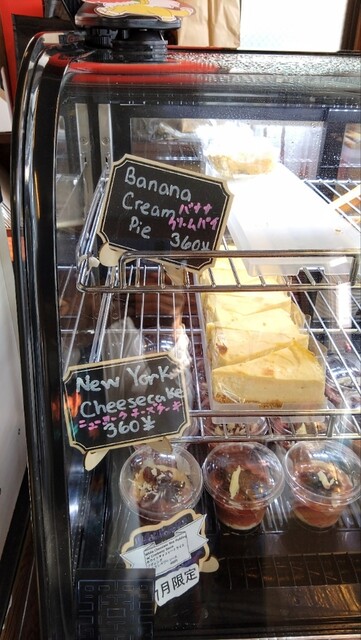 Banana
Cream バナナ
クリームパイ
Pie 360¥
New York
Cheesecake
ニューヨークチーズケーキ
360¥
月限定